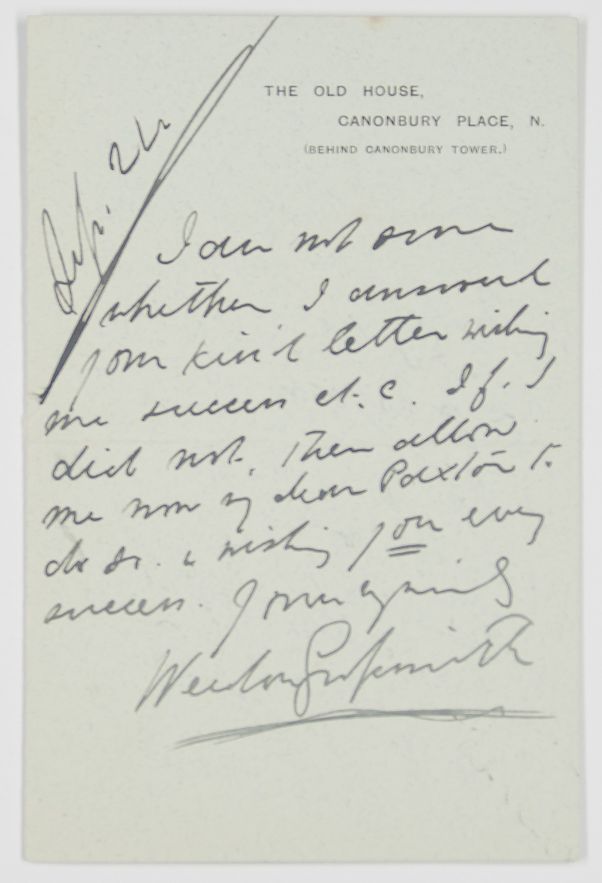 THE OLD HOUSE,
CANONBURY PLACE, N.
(BEHIND CANONBURY TOWER.)
Sep. 24
I am not sure
whether I answered
your kind letter wishing
me success et.c. If. I
did not, then allow
me now my dear Paxton to
do so. & wishing you every
success. Yours
Weedon Grossmith